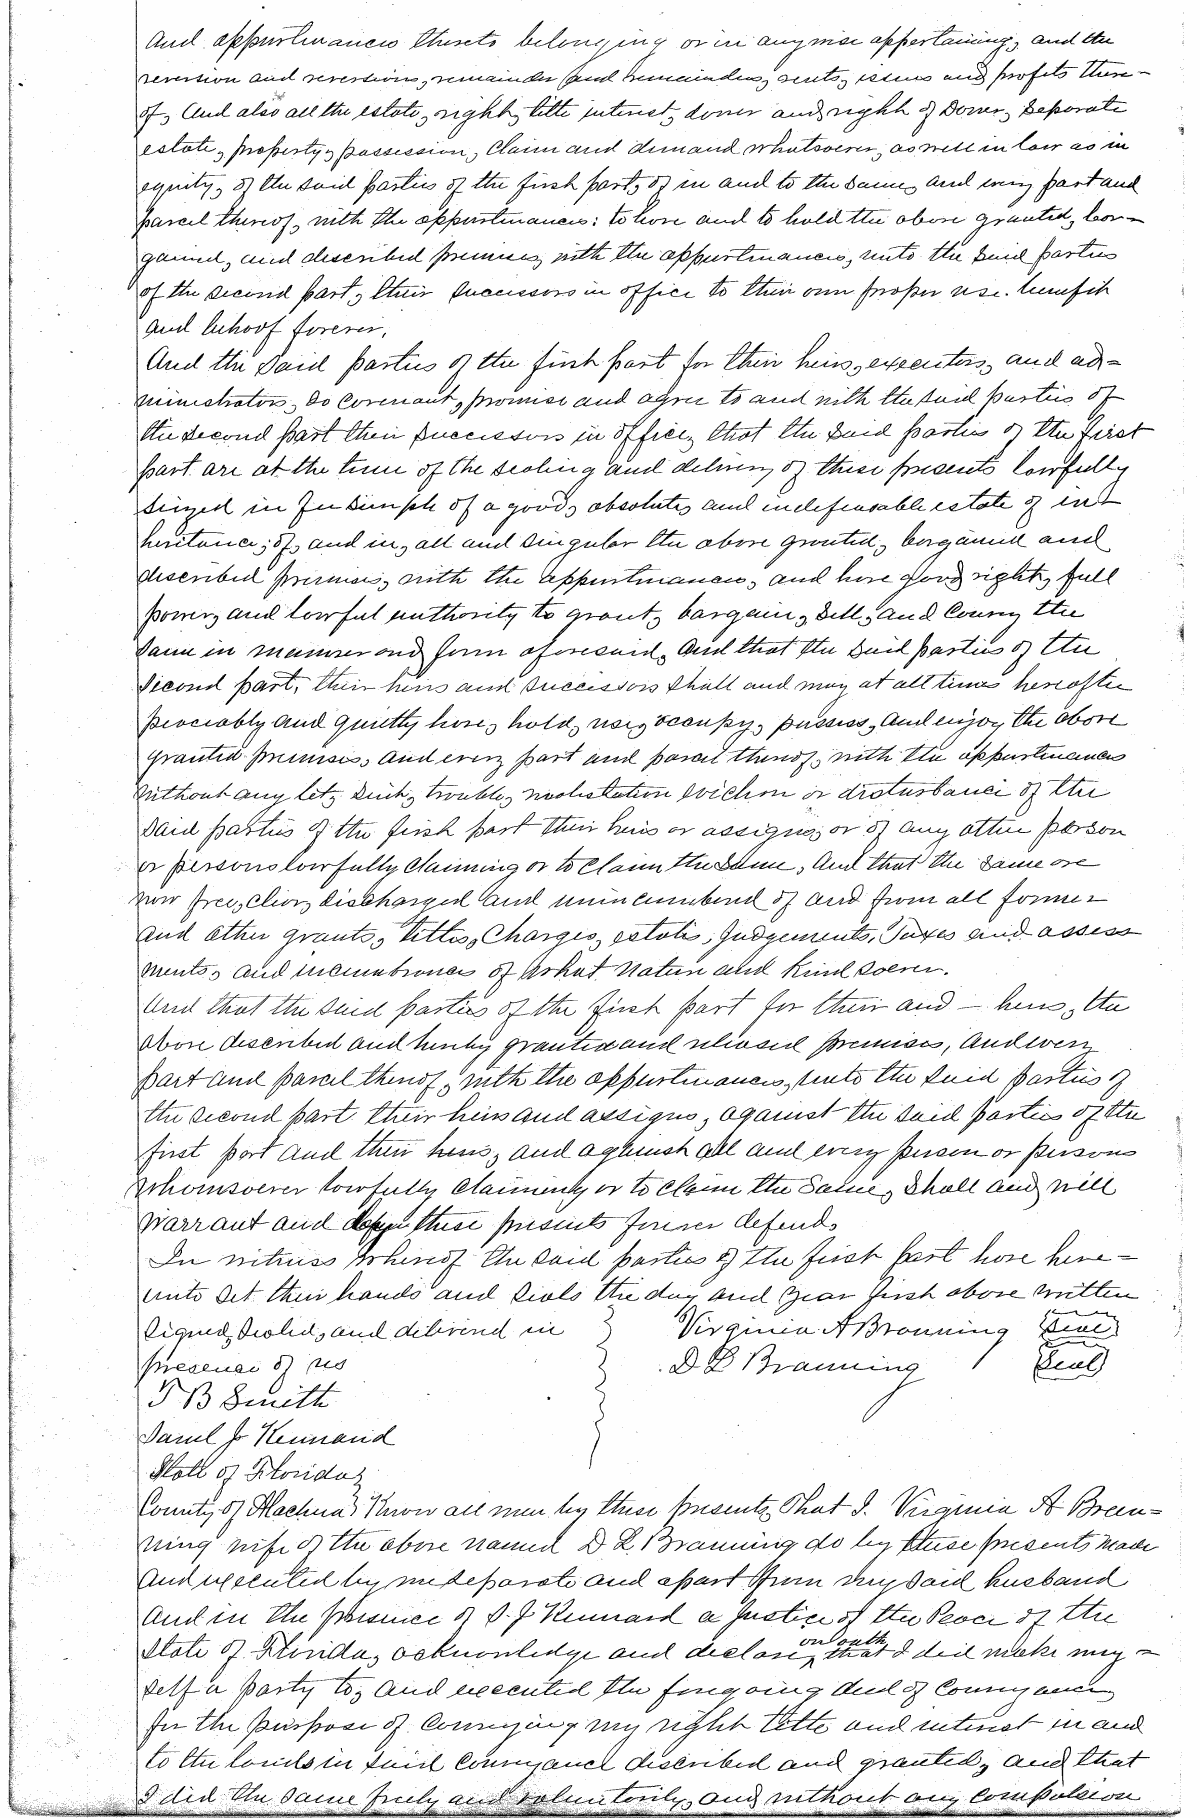 And appurtenances thereto belonging or in anywise appertaining, and the
reversion and reversions, remainder and remainders, rents, issues and profits there-
of, And also all the estate, right, title interest, dower and right of Dower, Separate
estate, property, possession, Claim and demand whatsoever, as well in law as in
equity, of the said parties of the first part, of in and to the same, and every part and
parcel thereof, with the appurtenances: to have and to hold the above granted, bar-
gained, and described premises, with the appurtenances, unto the said parties
of the second part, their successors in office to their own proper use. benefit
and behoof forever.
And the said parties of the first part for their heirs, executors, and ad-
ministrators, do covenant, promise and agree to and with the said parties of
the second part their successors in office, that the said parties of the first
part are at the time of the sealing and delivery of these presents lawfully
seized in Fee Simple of a good, absolute, and indefeasable estate of in-
heritance, of, and in, all and singular the above granted, bargained and
described premises, with the appurtenances, and have good right, full
power, and lawful authority to grant, bargain, Sell, and Convey the
same in manner and form aforesaid, And that the said parties of the
second part, their heirs and successors shall and may at all times hereafter
peaceably and quietly have, hold, use, occupy, possess, and enjoy the above
granted premises, and every part and parcel thereof, with the appurtenances
without any let, Suit, trouble, molestation eviction or disturbance of the
said parties of the first part their heirs or assigns, or of any other person
or persons lawfully Claiming or to Claim the same, And that the same are
now free, clear, discharged and unincumbered of and from all former
and other grants, titles, Charges, estates, Judgements, Taxes and assess
ments, and incumbrances of what nature and kind soever.
And that the said parties of the first part for their and - heirs, the
above described and hereby granted and released premises, and every
part and parcel thereof, with the appurtenances, unto the said parties of
the second part their heirs and assigns, against the said parties of the
first part and their heirs, and against all and every person or persons
whomsoever lawfully claiming or to claim the same, shall and will
warrant and these presents forever defend.
In witness whereof the said parties of the first part have here-
unto set their hands and seals the day and year first above written
Signed, Sealed, and delivered in } Virginia A Branning Seal
presence of us } D L Branning Seal
T B Smith
Saml J Kennard
State of Florida}
County of Alachua} Know all men by these presents, That I. Virginia A Bran-
ning wife of the above named D L. Branning do by these presents made
and executed by me separate and apart from my said husband
and in the presence of S. J Kennard a Justice of the Peace of the
State of Florida, acknowledge and declare on oath that I did make my-
self a party to, and executed the foregoing deed of Conveyance
for the purpose of Conveying my right title and interest in and
to the lands in said Conveyance described and granted, and that
I did the same freely and voluntarily, and without any compulsion